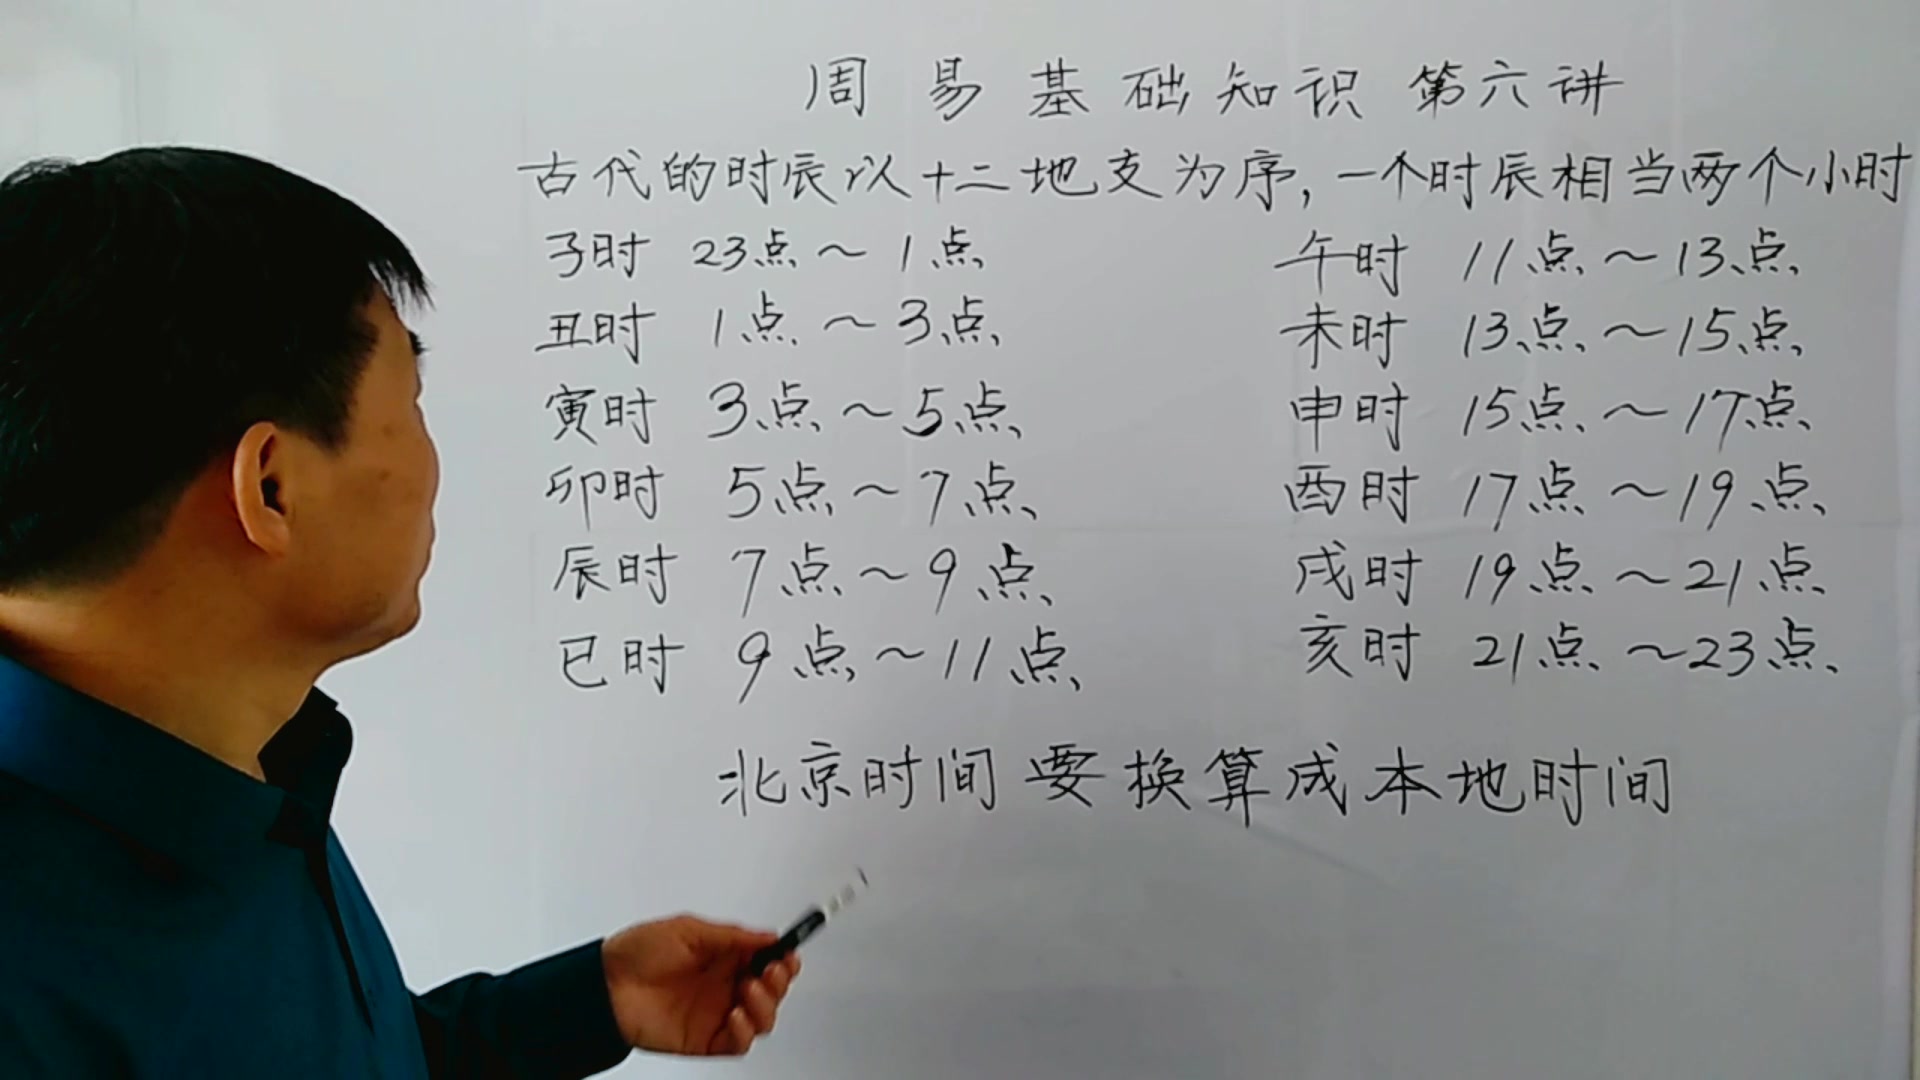 周易基础知识 第六讲
古代的时辰以十二地支为序,一个时辰相当两个小时
子时 23点~1点
丑时 1点~3点
寅时 3点~5点
卯时 5点~7点
辰时 7点~9点
巳时 9点~11点
午时 11点~13点
未时 13点~15点
申时 15点~17点
酉时 17点~19点
戌时 19点~21点
亥时 21点~23点
北京时间要换算成本地时间